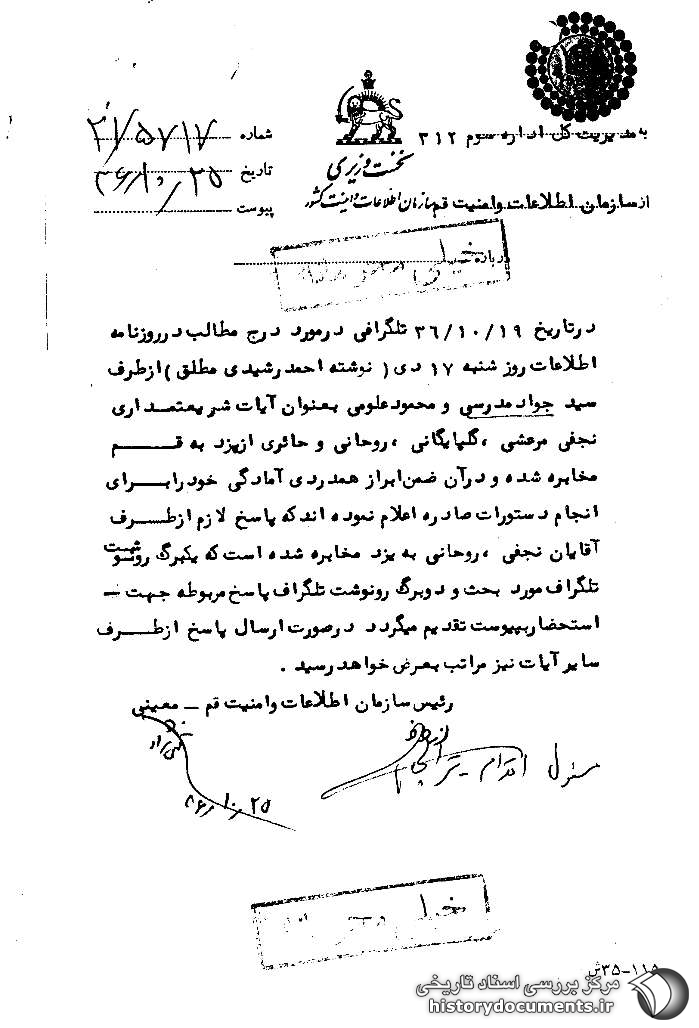 به مدیریت کل اداره سوم ۳۱۲
از سازمان اطلاعات و امنیت قم
نخست وزیری
سازمان اطلاعات و امنیت کشور
شماره ۲۱/۵۷۱۷
تاریخ ۳۶/۱۰/۲۵
پیوست
درباره
خیلی محرمانه
در تاریخ ۳۶/۱۰/۱۹ تلگرافی در مورد درج مطالب در روزنامه
اطلاعات روز شنبه ۱۷ دی ( نوشته احمد رشیدی مطلق ) از طرف
سید جواد مدرسی و محمود علومی بعنوان آیات شریعتمداری
نجفی مرعشی ، گلپایگانی ، روحانی و حائری از یزد به قم
مخابره شده و در آن ضمن ابراز همدردی آمادگی خود را برای
انجام دستورات صادره اعلام نموده اند که پاسخ لازم از طرف
آقایان نجفی ، روحانی به یزد مخابره شده است که یکبرگ رونوشت
تلگراف مورد بحث و دو برگ رونوشت تلگراف پاسخ مربوطه جهت –
استحضار بپیوست تقدیم میگردد در صورت ارسال پاسخ از طرف
سایر آیات نیز مراتب بعرض خواهد رسید .
رئیس سازمان اطلاعات و امنیت قم – معینی
مسئول اقدام –
۱۰/۲۵
خیلی محرمانه
۳۵-۱۱۵ش
مرکز بررسی اسناد تاریخی
historydocuments.ir